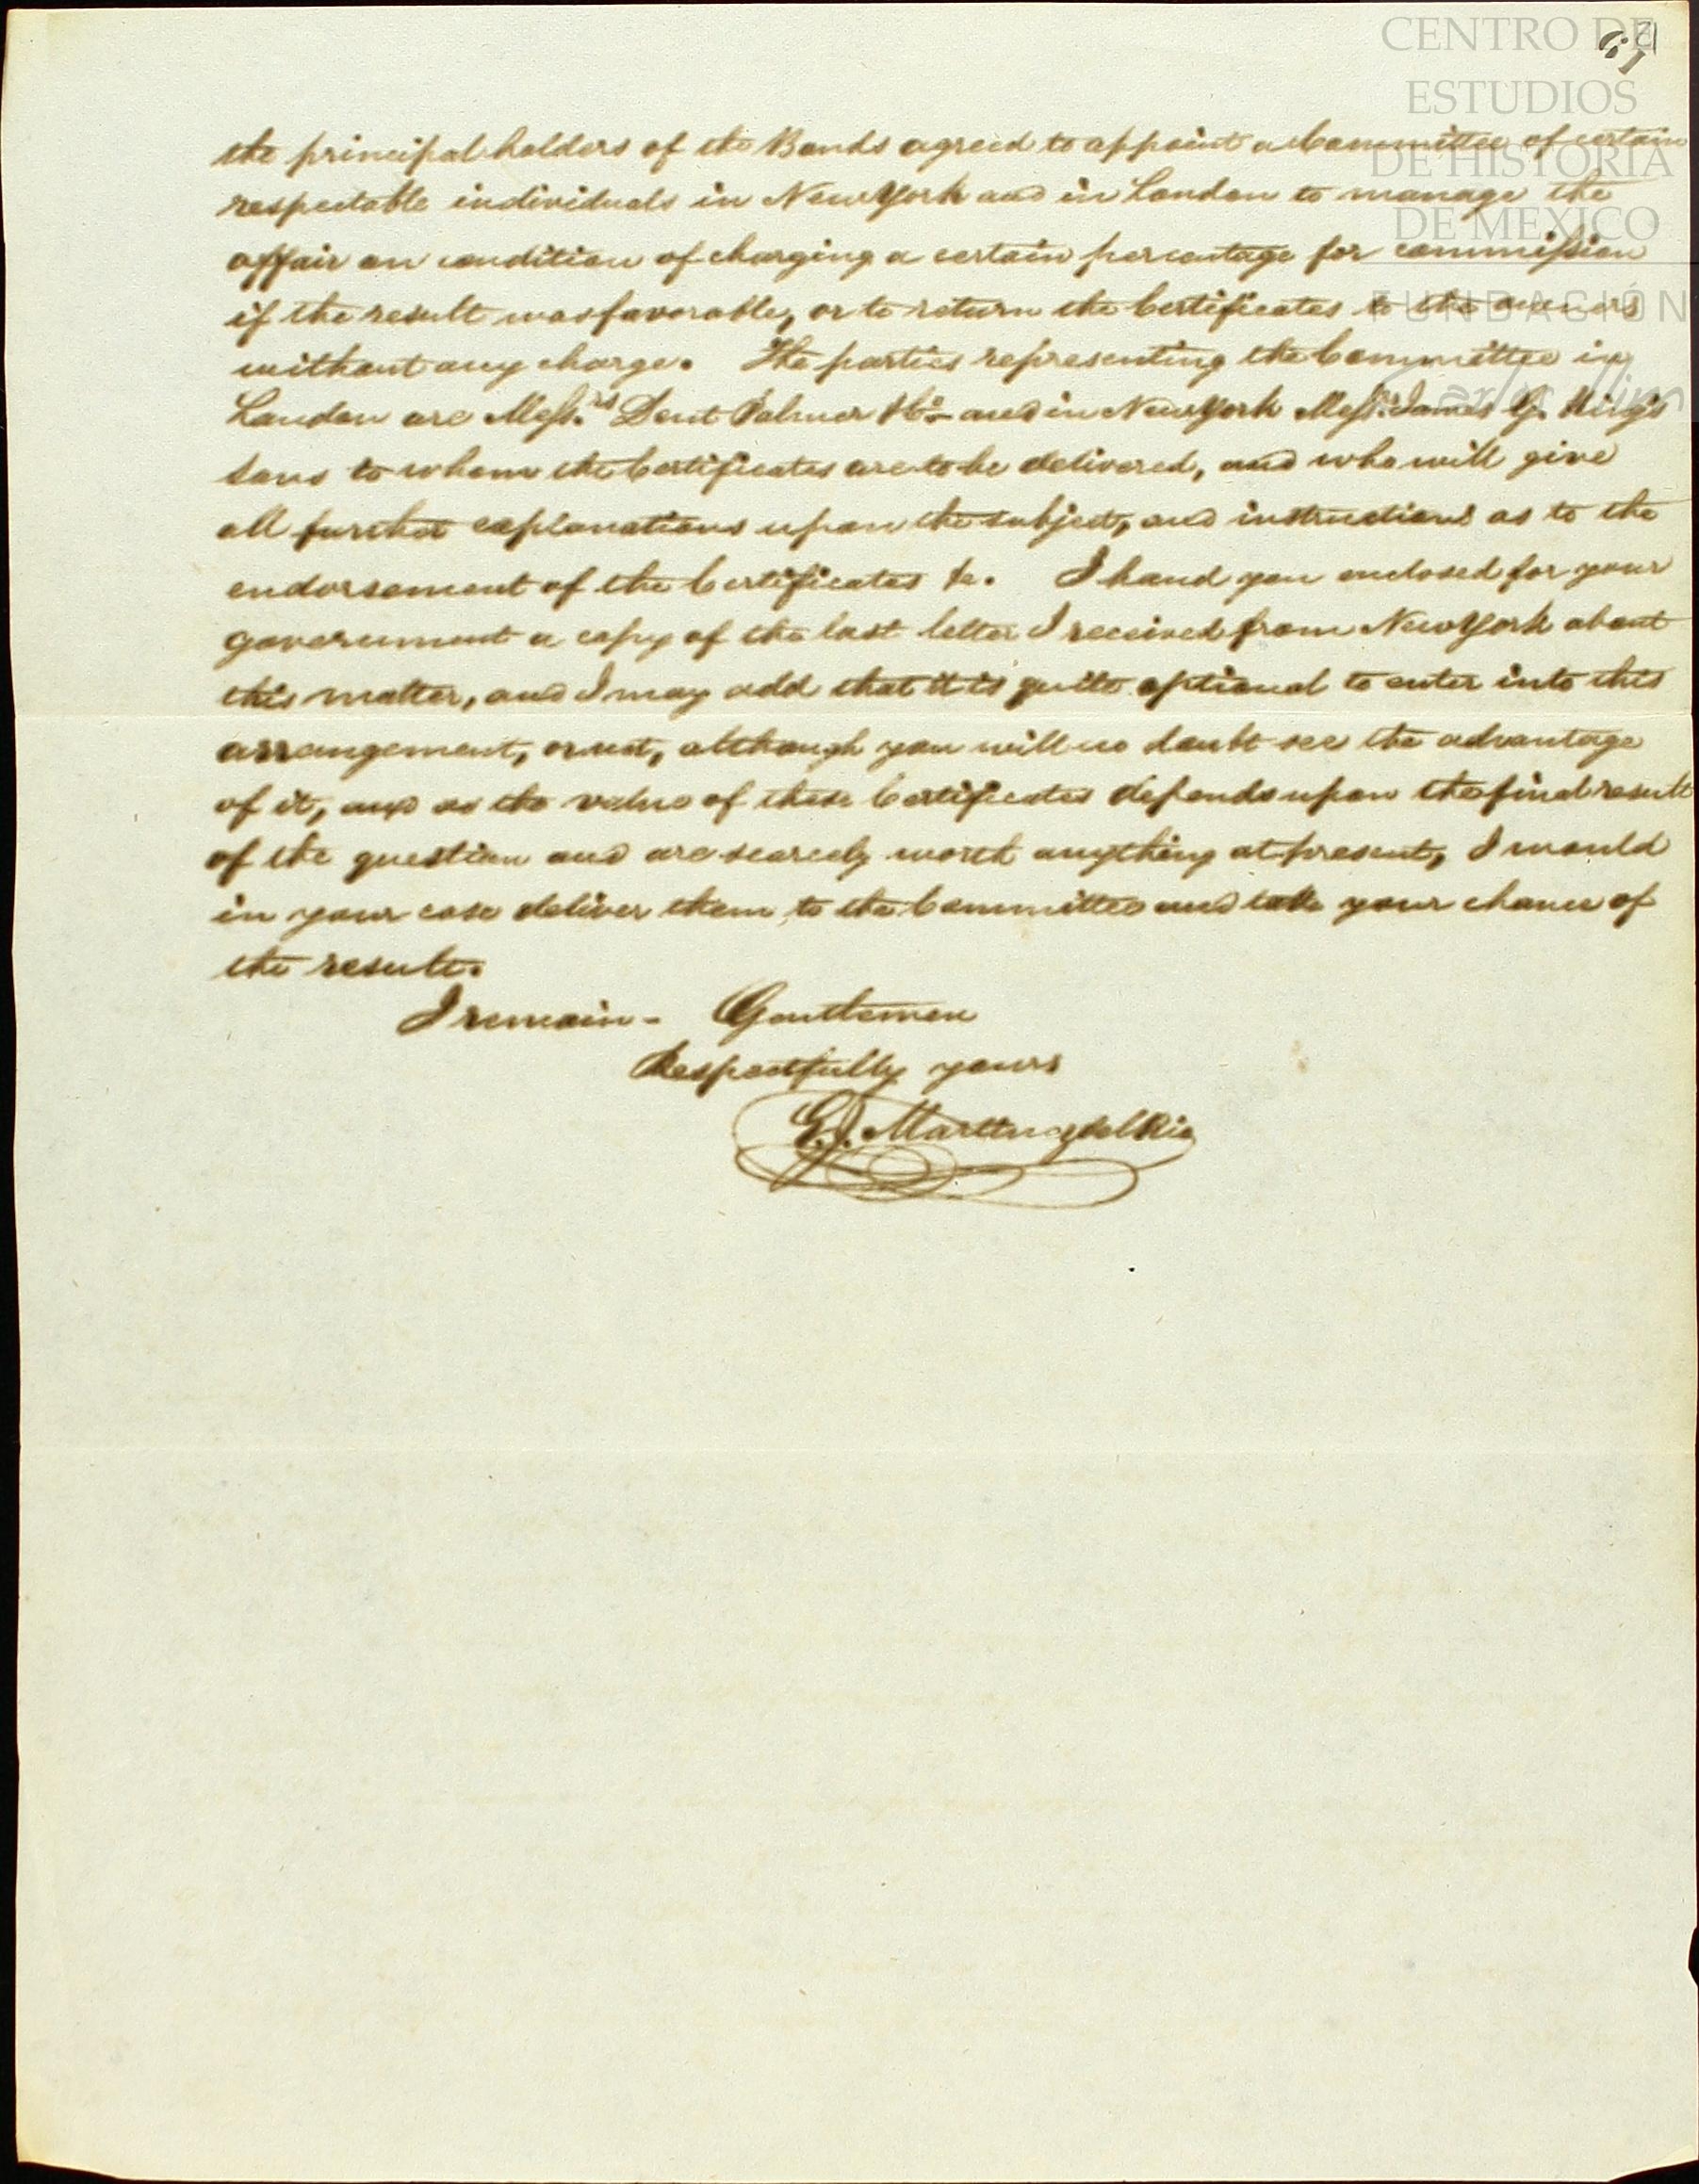 CENTRO DE
ESTUDIOS
DE HISTORIA
DE MEXICO
FUNDACIÓN
Carlos Slim
the principal holders of the Bonds agreed to appoint a Committee of certain
respectable individuals in New York and in London to manage the
affair on condition of charging a certain percentage for commission
if the result was favorable, or to return the Certificates to the owners
without any charge. The parties representing the Committee in
London are Mess.rs Dent Palmer &Co and in New York Mess.rs James G. King's
sons to whom the Certificates are to be delivered, and who will give
all further explanations upon the subject, and instructions as to the
endorsement of the Certificates &c. I hand you enclosed for your
government a copy of the last letter I received from New York about
this matter, and I may add that it is quite optional to enter into this
arrangement, or not, although you will no doubt see the advantage
of it, and as the value of these Certificates depends upon the final result
of the question and are scarcely worth anything at present, I would
in your case deliver them to the Committee and take your chance of
the result.
I remain - Gentlemen
Respectfully yours
G.J. Martinez del Rio